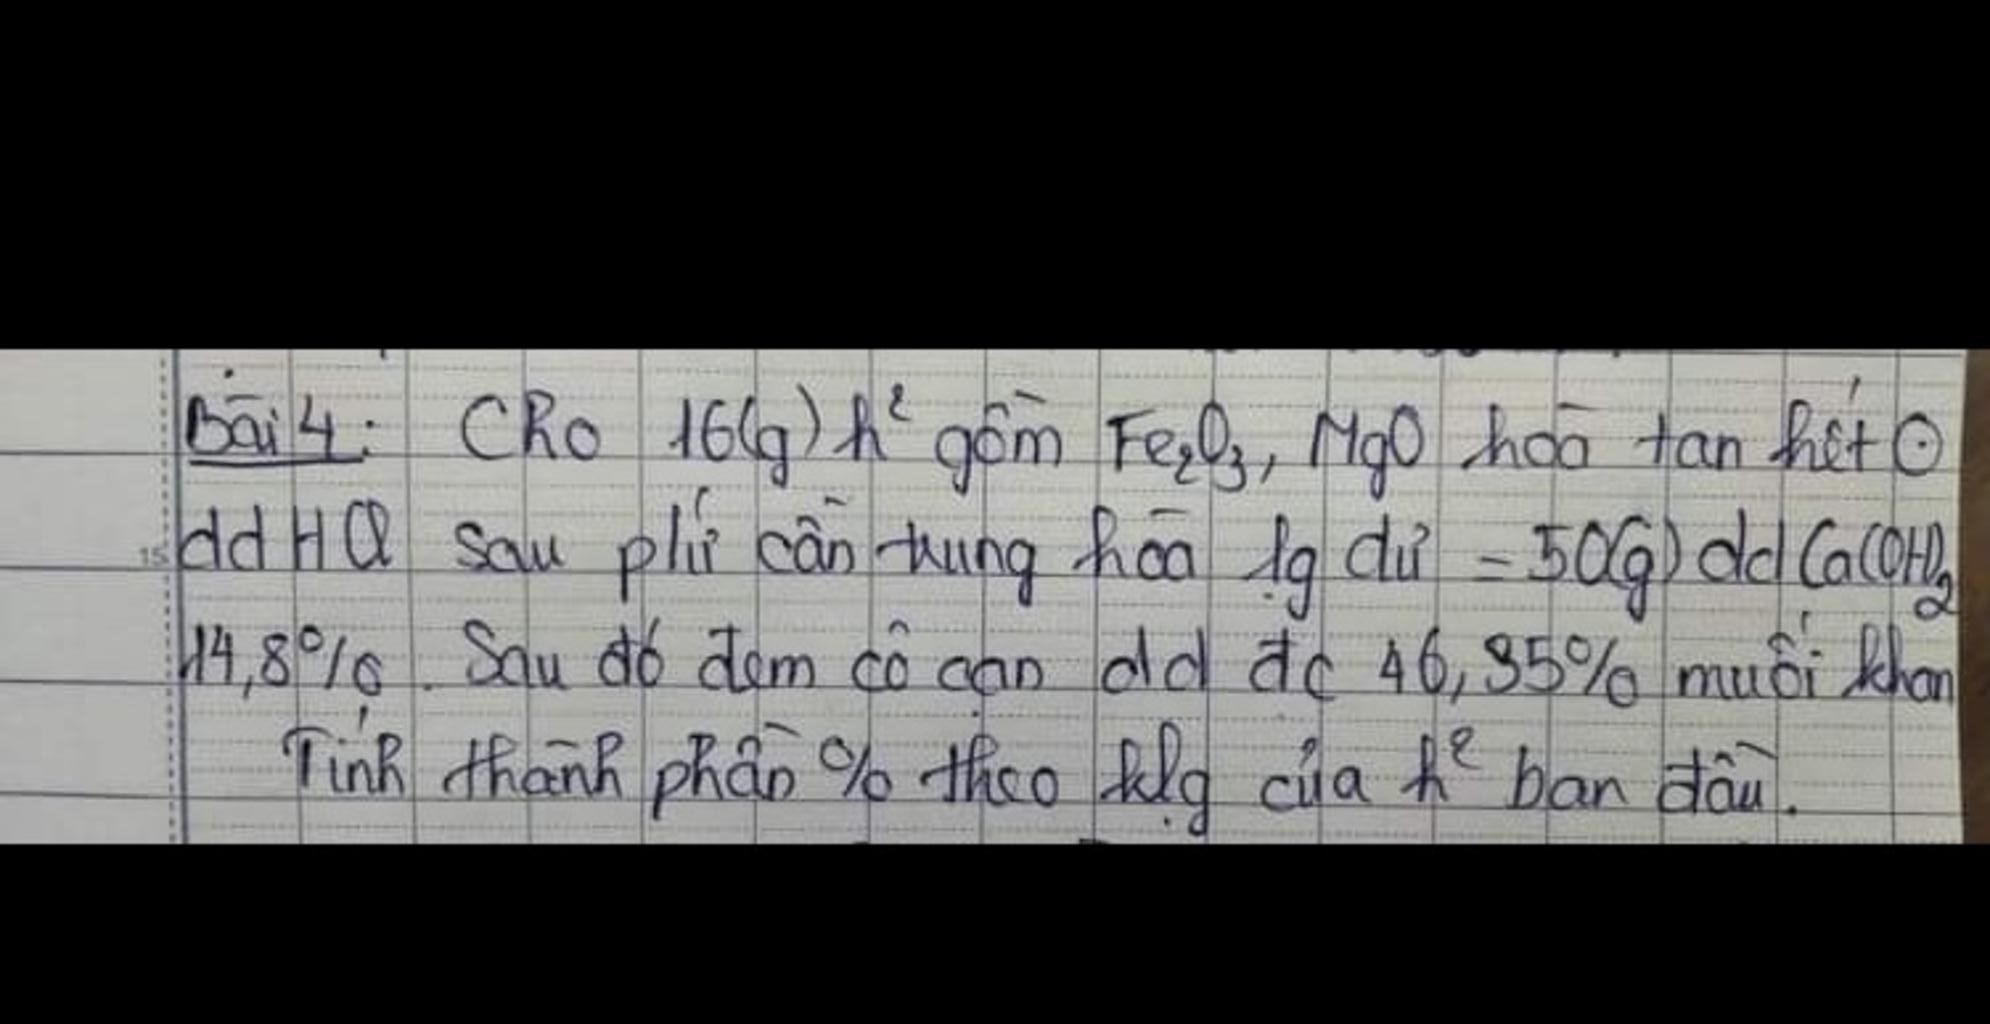 Bài 4: Cho 16(g) h² gồm Fe₂O₃, MgO hoà tan hết ⊙
dd HCl sau phứ cần trung hoà lg dư = 50(g) dd Ca(OH)₂
14,8% . Sau đó đem cô cạn dd đc 46,35% muối khan
Tính thành phần % theo klg của h² ban đầu.